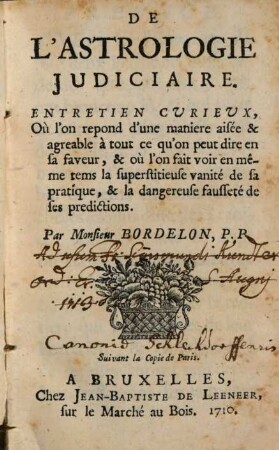 DE
L'ASTROLOGIE
JUDICIAIRE.
ENTRETIEN CURIEUX,
Où l'on repond d'une maniere aisée &
agreable à tout ce qu'on peut dire en
sa faveur, & où l'on fait voir en mê-
me tems la superstitieuse vanité de sa
pratique, & la dangereuse fausseté de
ses predictions.
Par Monsieur BORDELON, P. P.
Ad usum Fr.
Canonici
Suivant la Copie de Paris.
A BRUXELLES,
Chez JEAN-BAPTISTE DE LEENEER,
sur le Marché au Bois. 1710.